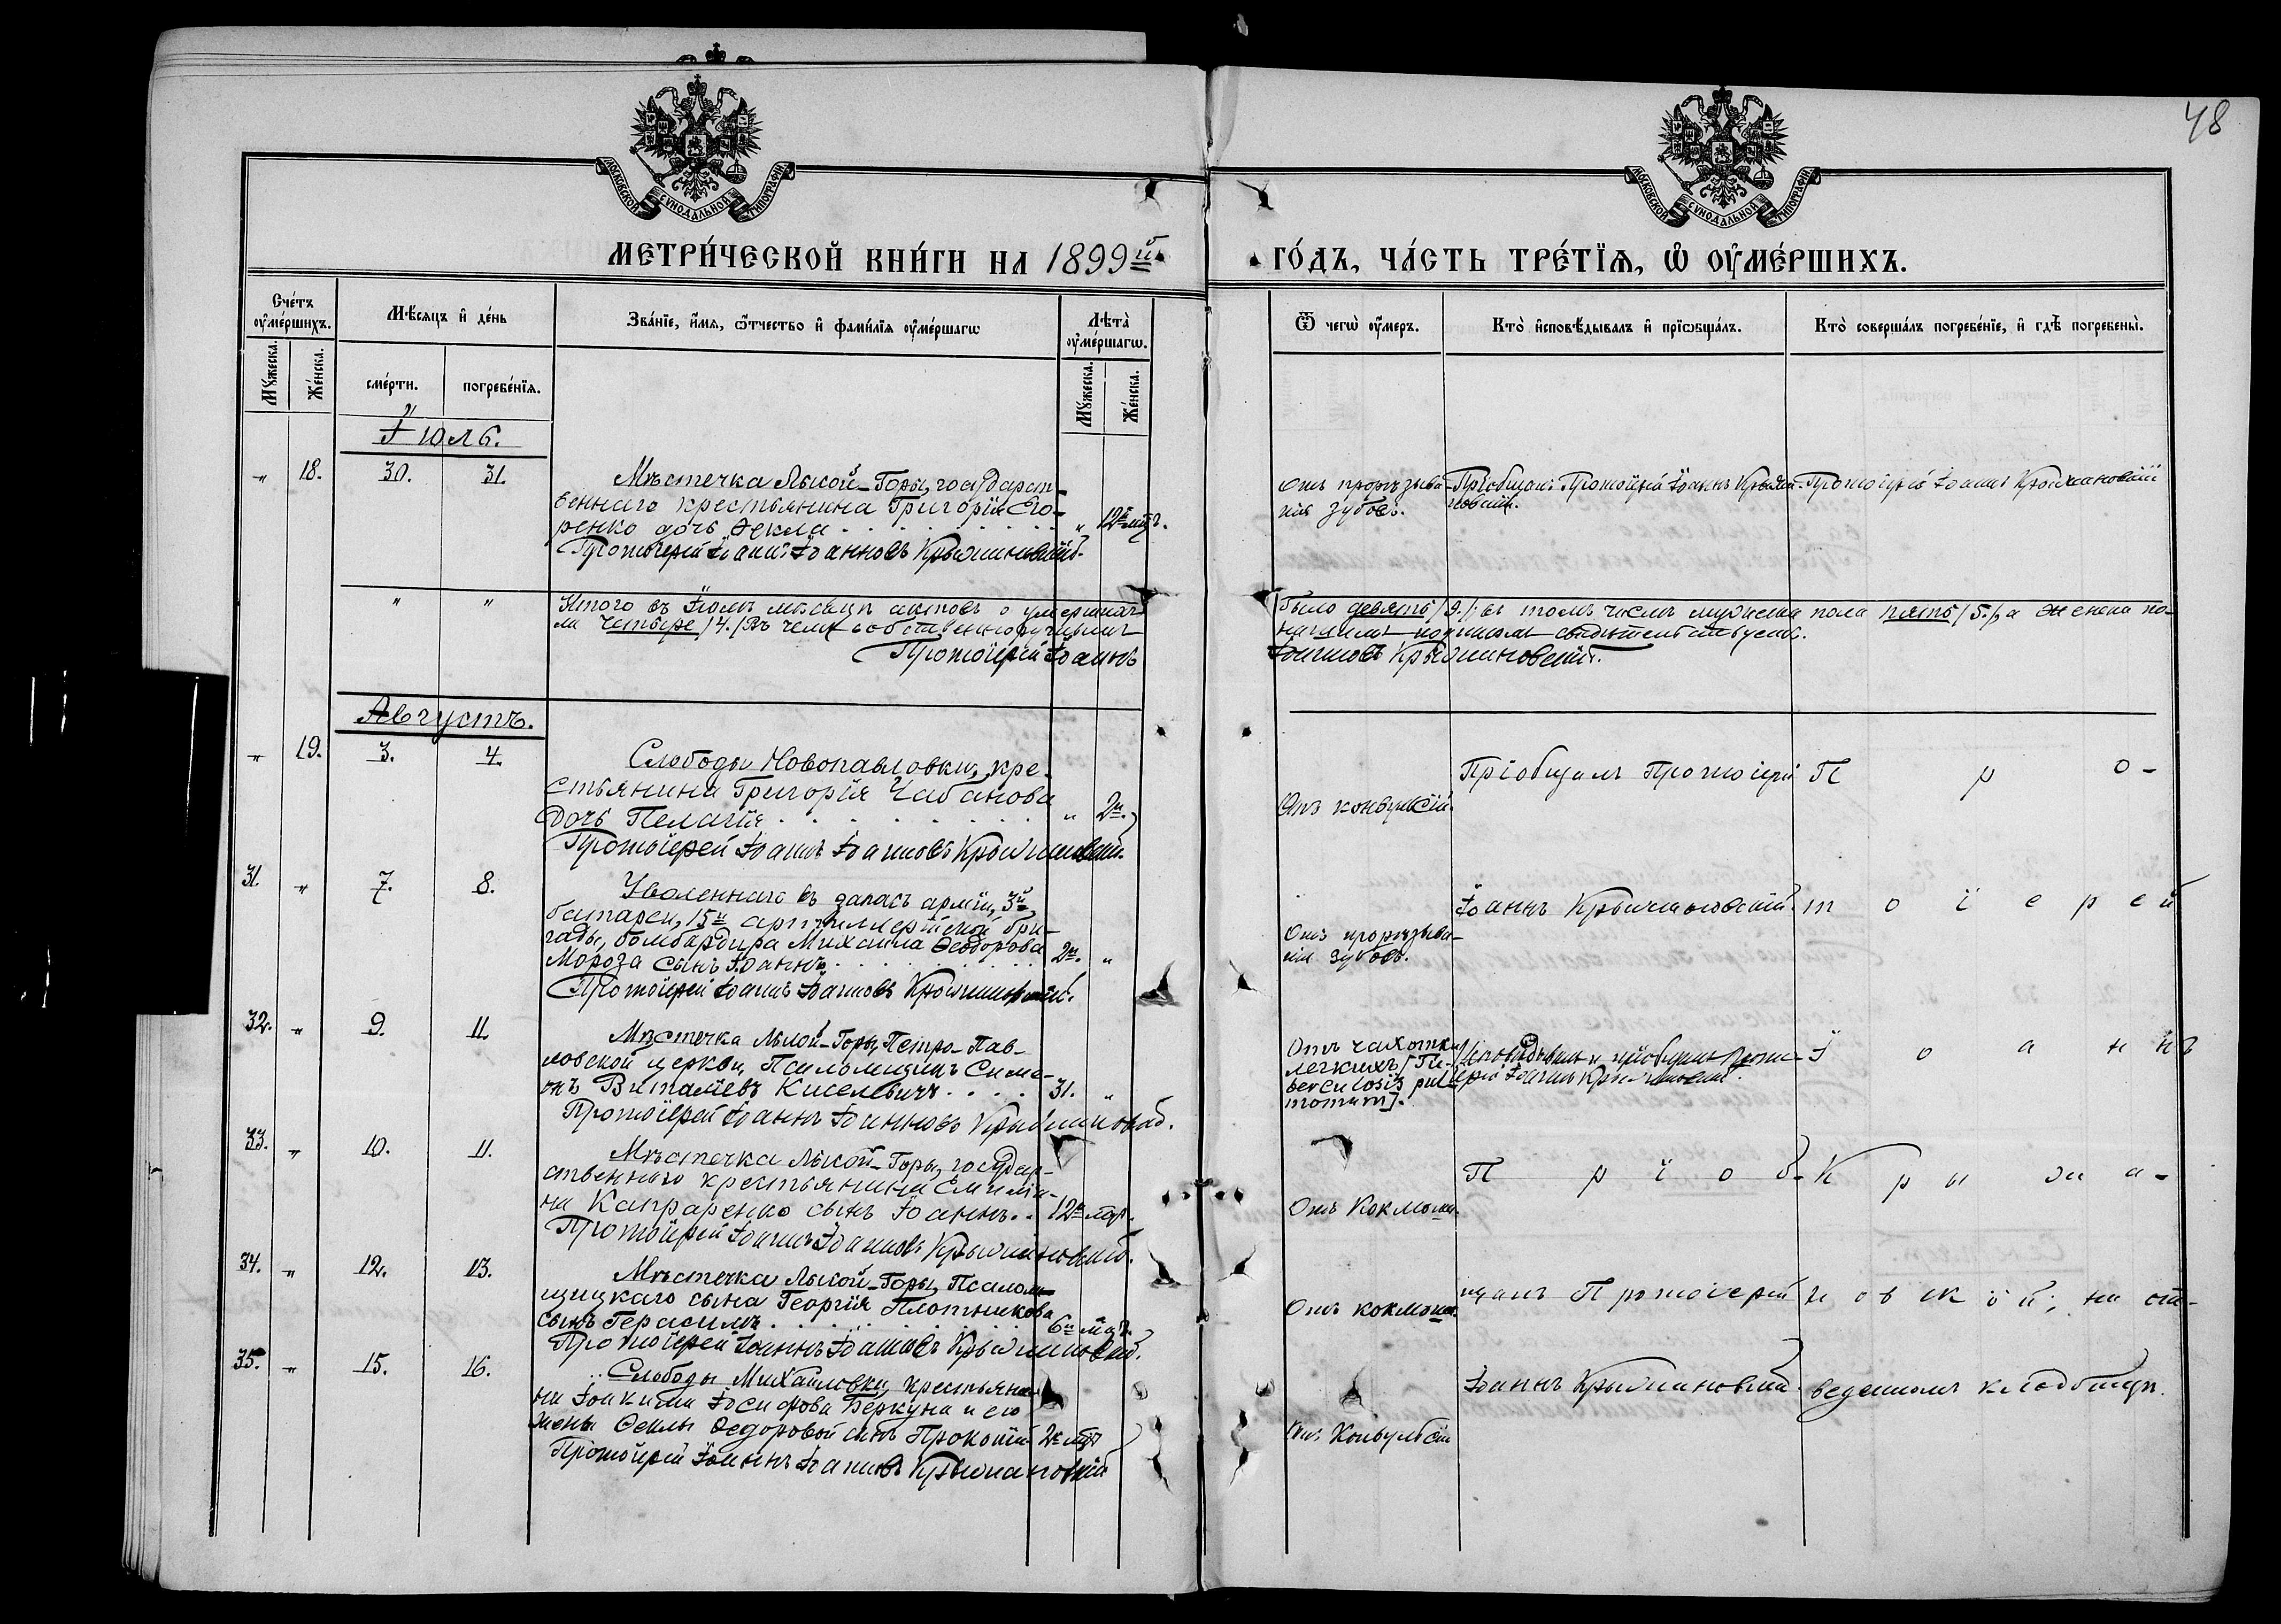 48
МОСКОВСКОЙ СѴНОДАЛЬНОЙ ТИПОГРАФІИ
МОСКОВСКОЙ СѴНОДАЛЬНОЙ ТИПОГРАФІИ
МЕТРИ́ЧЕСКОЙ КНИ́ГИ НА 1899й
ГО́ДЪ, ЧА́СТЬ ТРЕ́ТЇѦ, Ѡ ОУМЕ́РШИХЪ.
Сче́тъ оуме́ршихъ.
Мѣ́сяцъ и де́нь
Зва́нїе, и́мя, ѿчество и фами́лїя оуме́ршагѡ
Лѣта̀ оуме́ршагѡ.
Ѿ чегѡ̀ оу́меръ.
Кто̀ исповѣ́дывалъ и прїѡбща́лъ.
Кто̀ соверша́лъ погребе́нїе, и гдѣ̀ погребены̀.
Му́жеска.
Же́нска.
сме́рти.
погребе́нїя.
Му́жеска.
Же́нска.
Іюль.
" 18. 30. 31.
Мѣстечка Лысой-Горы, государст-
веннаго крестьянина Григорія Его-
ренко дочь Ѳекла " 12ти мѣц.
Протоіерей Іоаннъ Іоанновъ Крыжановскій.
Отъ прорѣзыва-
нія зубовъ.
Пріобщалъ Протоіерей Іоаннъ Крыжа-
новскій.
Протоіерей Іоаннъ Крыжановскій
" "
Итого въ Іюлѣ мѣсяцѣ актовъ о умершихъ
было девять /9./; въ томъ числѣ мужеска пола пять /5./, а женска по-
ла четыре /4./ Въ чемъ собственноручнымъ
нашимъ подписомъ свидѣтельствуемъ.
Протоіерей Іоаннъ
Іоанновъ Крыжановскій.
Августъ.
" 19. 3. 4.
Слободы Новопавловки, кре-
стьянина Григорія Чабанова
дочь Пелагія " 2л.
Протоіерей Іоаннъ Іоанновъ Крыжановскій.
Отъ конвульсій.
Пріобщалъ Протоіерей
П р о-
31. " 7. 8.
Уволеннаго въ запасъ арміи, 3й
батареи, 15й артиллерійской бри-
гады, бомбардира Михаила Ѳеодорова
Мороза сынъ Іоаннъ 2л. "
Протоіерей Іоаннъ Іоанновъ Крыжановскій.
Отъ прорѣзыва-
нія зубовъ.
Іоаннъ Крыжановскій.
т о і е р е й
32. " 9. 11.
Мѣстечка Лысой-Горы, Петро-Пав-
ловской церкви, Псаломщикъ Симе-
онъ Виталіевъ Киселевичъ 31. "
Протоіерей Іоаннъ Іоанновъ Крыжановскій.
Отъ чахотки
легкихъ [Tu-
berculosis pul-
monum].
Исповѣдывалъ и пріобщалъ Прото-
іерей Іоаннъ Крыжановскій.
І о а н н ъ
33. " 10. 11.
Мѣстечка Лысой-Горы, государ-
ственнаго крестьянина Емилія-
на Капраренко сынъ Іоаннъ 12ти мѣц.
Протоіерей Іоаннъ Іоанновъ Крыжановскій.
Отъ коклюша.
П р і о б-
К р ы ж а-
34. " 12. 13.
Мѣстечка Лысой-Горы, Псалом-
щицкаго сына Георгія Плотникова
сынъ Герасимъ 6ти мѣц.
Протоіерей Іоаннъ Іоанновъ Крыжановскій.
Отъ коклюша.
щалъ Протоіерей
н о в с к і й; на от-
35. " 15. 16.
Слободы Михайловки, крестьяни-
на Іоакима Іосифова Беркуна и его
жены Ѳеклы Ѳедоровой сынъ Прокопій 2хъ мѣц.
Протоіерей Іоаннъ Іоанновъ Крыжановскій
Отъ Конвульсій
Іоаннъ Крыжановскій.
веденномъ кладбищѣ.